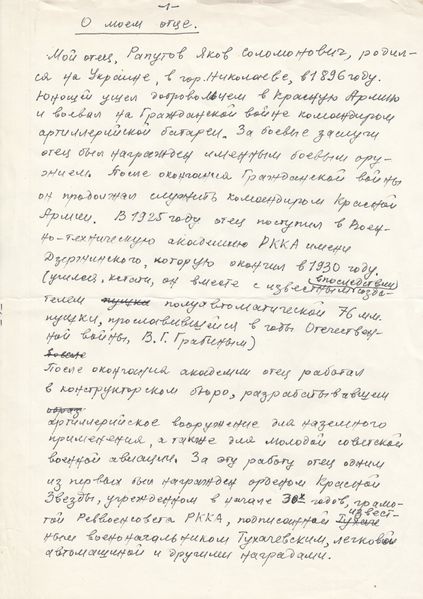 -1-
О моем отце.
Мой отец, Рапутов Яков Соломонович, родил-
ся на Украине, в гор. Николаеве, в 1896 году.
Юношей ушел добровольцем в Красную Армию
и воевал на Гражданской войне командиром
артиллерийской батареи. За боевые заслуги
отец был награжден именным боевым ору-
жием. После окончания Гражданской войны
он продолжал служить командиром Красной
Армии. В 1925 году отец поступил в Воен-
но-техническую академию РККА имени
Дзержинского, которую окончил в 1930 году.
(учился, кстати, он вместе с известным впоследствии созда-
телем пушки полуавтоматической 76 мм.
пушки, прославившейся в годы Отечествен-
ной войны, В.Г. Грабиным)
После
После окончания академии отец работал
в конструкторском бюро, разрабатывавшем
образ
артиллерийское вооружение для наземного
применения, а также для молодой советской
военной авиации. За эту работу отец одним
из первых был награжден орденом Красной
Звезды, учрежденном в начале 30х годов, грамо-
той Реввоенсовета РККА, подписанной Тухаче известным
военачальником Тухачевским, легковой
автомашиной и другими наградами.